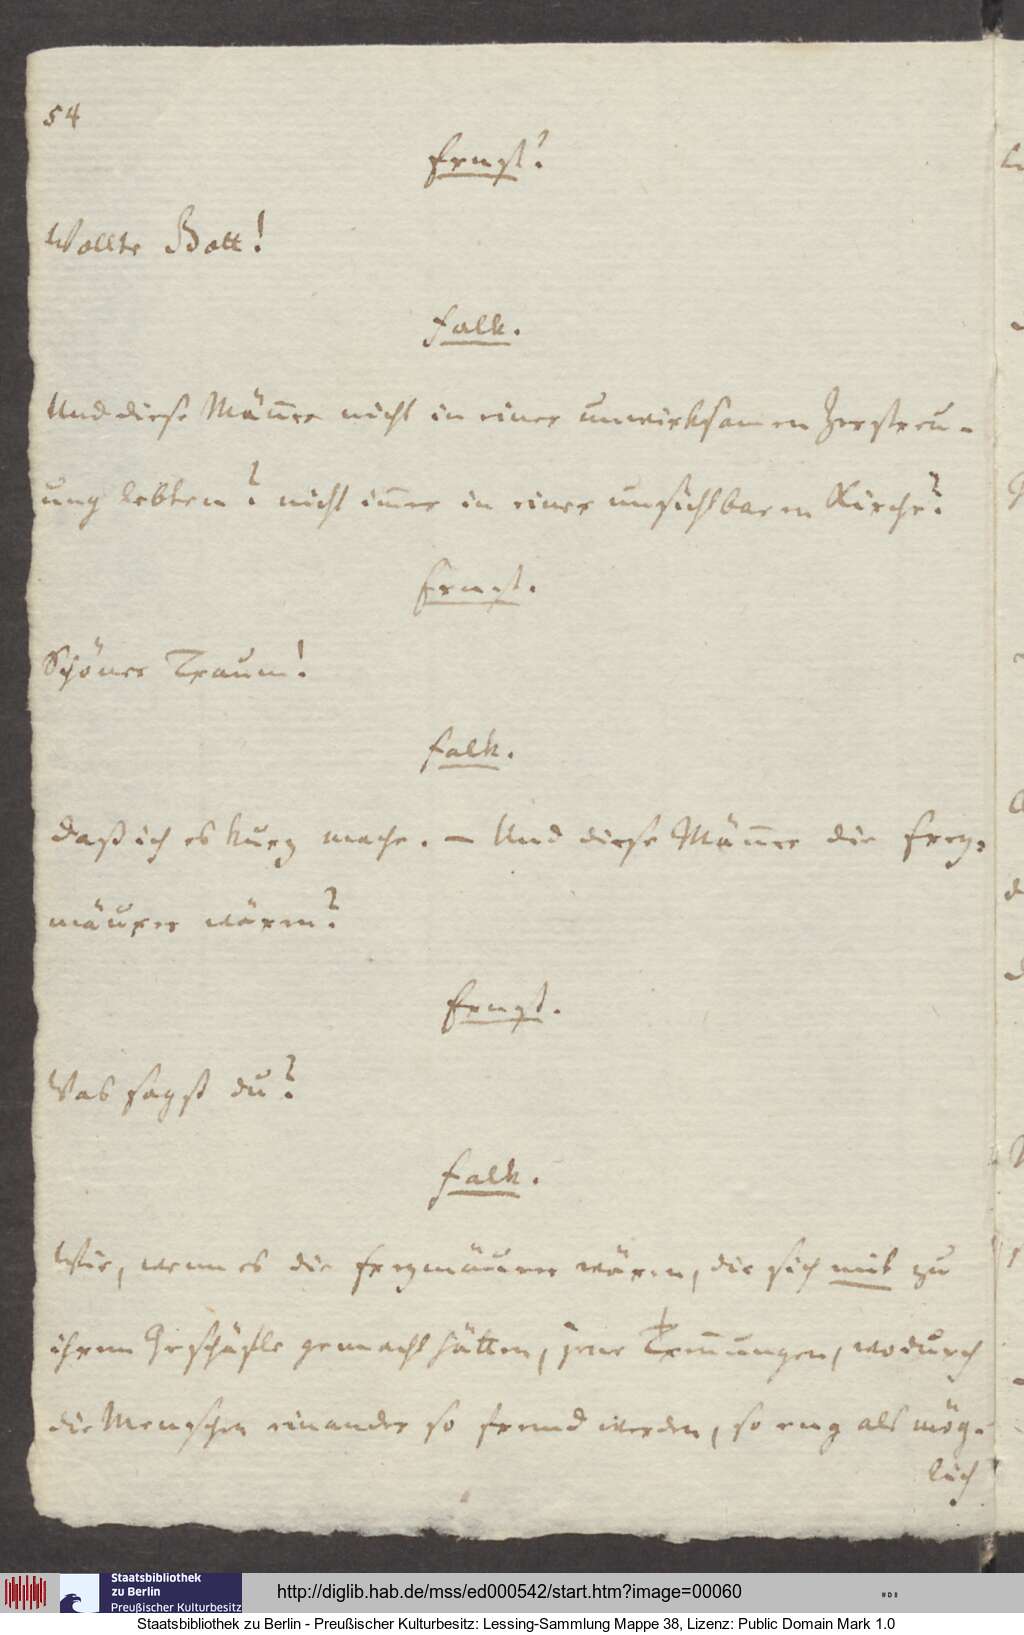 54
Ernst?
Wollte Gott!
Falk.
Und diese Männer nicht in einer unwirksamen Zerstreu-
ung lebten? nicht immer in einer unsichtbaren Kirche?
Ernst.
Schöner Traum!
Falk.
Daß ich es kurz mache. — Und diese Männer die Frey-
mäurer wären?
Ernst.
Was sagst du?
Falk.
Wie, wenn es die Freymäurer wären, die sich mit zu
ihrem Geschäfte gemacht hätten, jene Trennungen, wodurch
die Menschen einander so fremd werden, so eng als mög-
lich
Staatsbibliothek
zu Berlin
Preußischer Kulturbesitz
http://diglib.hab.de/mss/ed000542/start.htm?image=00060
Staatsbibliothek zu Berlin - Preußischer Kulturbesitz: Lessing-Sammlung Mappe 38, Lizenz: Public Domain Mark 1.0